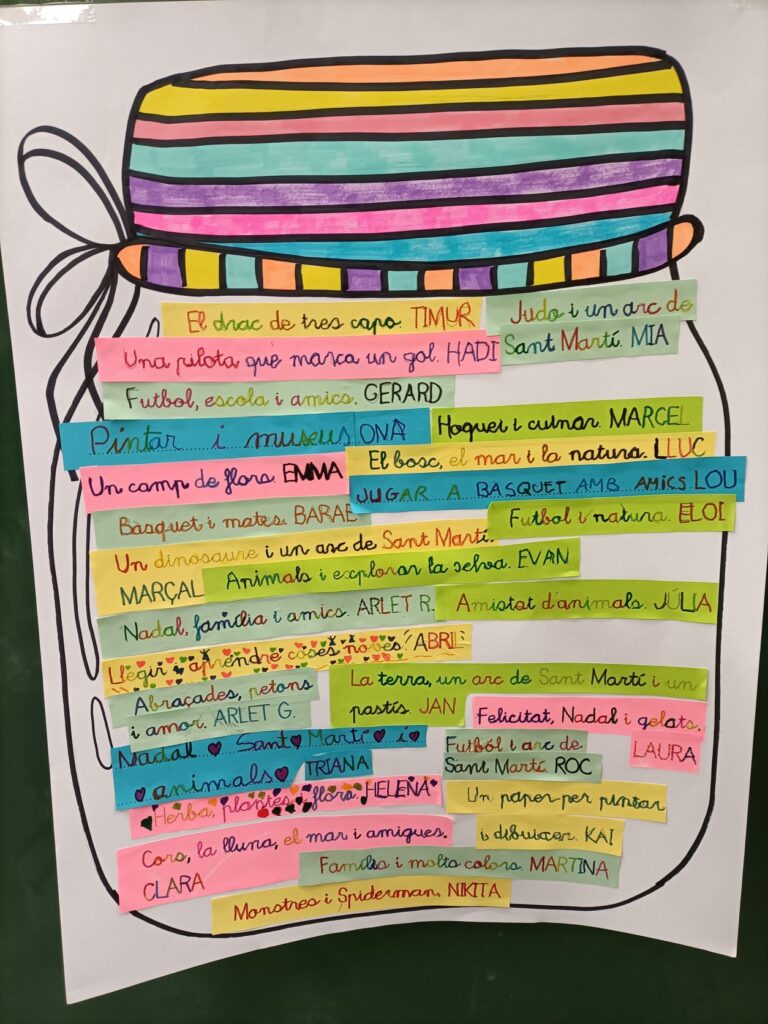 El drac de tres caps. TIMUR
Judo i un arc de
Sant Martí. MIA
Una pilota que marca un gol. HADI
Futbol, escola i amics. GERARD
Pintar i museus ONA
Hoquei i cuinar. MARCEL
El bosc, el mar i la natura. LLUC
Un camp de flors. EMMA
JUGAR A BASQUET AMB AMICS LOU
Bàsquet i mates. BARAE
Futbol i natura. ELOI
Un dinosaure i un arc de Sant Martí.
MARÇAL
Animals i explorar la selva. EVAN
Nadal, família i amics. ARLET R.
Amistat d'animals. JÚLIA
Llegir i aprendre coses noves. ABRIL
Abraçades, petons
i amor. ARLET G.
La terra, un arc de Sant Martí i un
pastís. JAN
Felicitat, Nadal i gelats.
LAURA
Nadal Sant Martí i
animals TRIANA
Futbol i arc de
Sant Martí. ROC
Herba, plantes i flors. HELENA
Un paper per pintar
i dibuixar. KAI
Cors, la lluna, el mar i amigues.
CLARA
Família i molts colors. MARTINA
Monstres i Spiderman. NIKITA